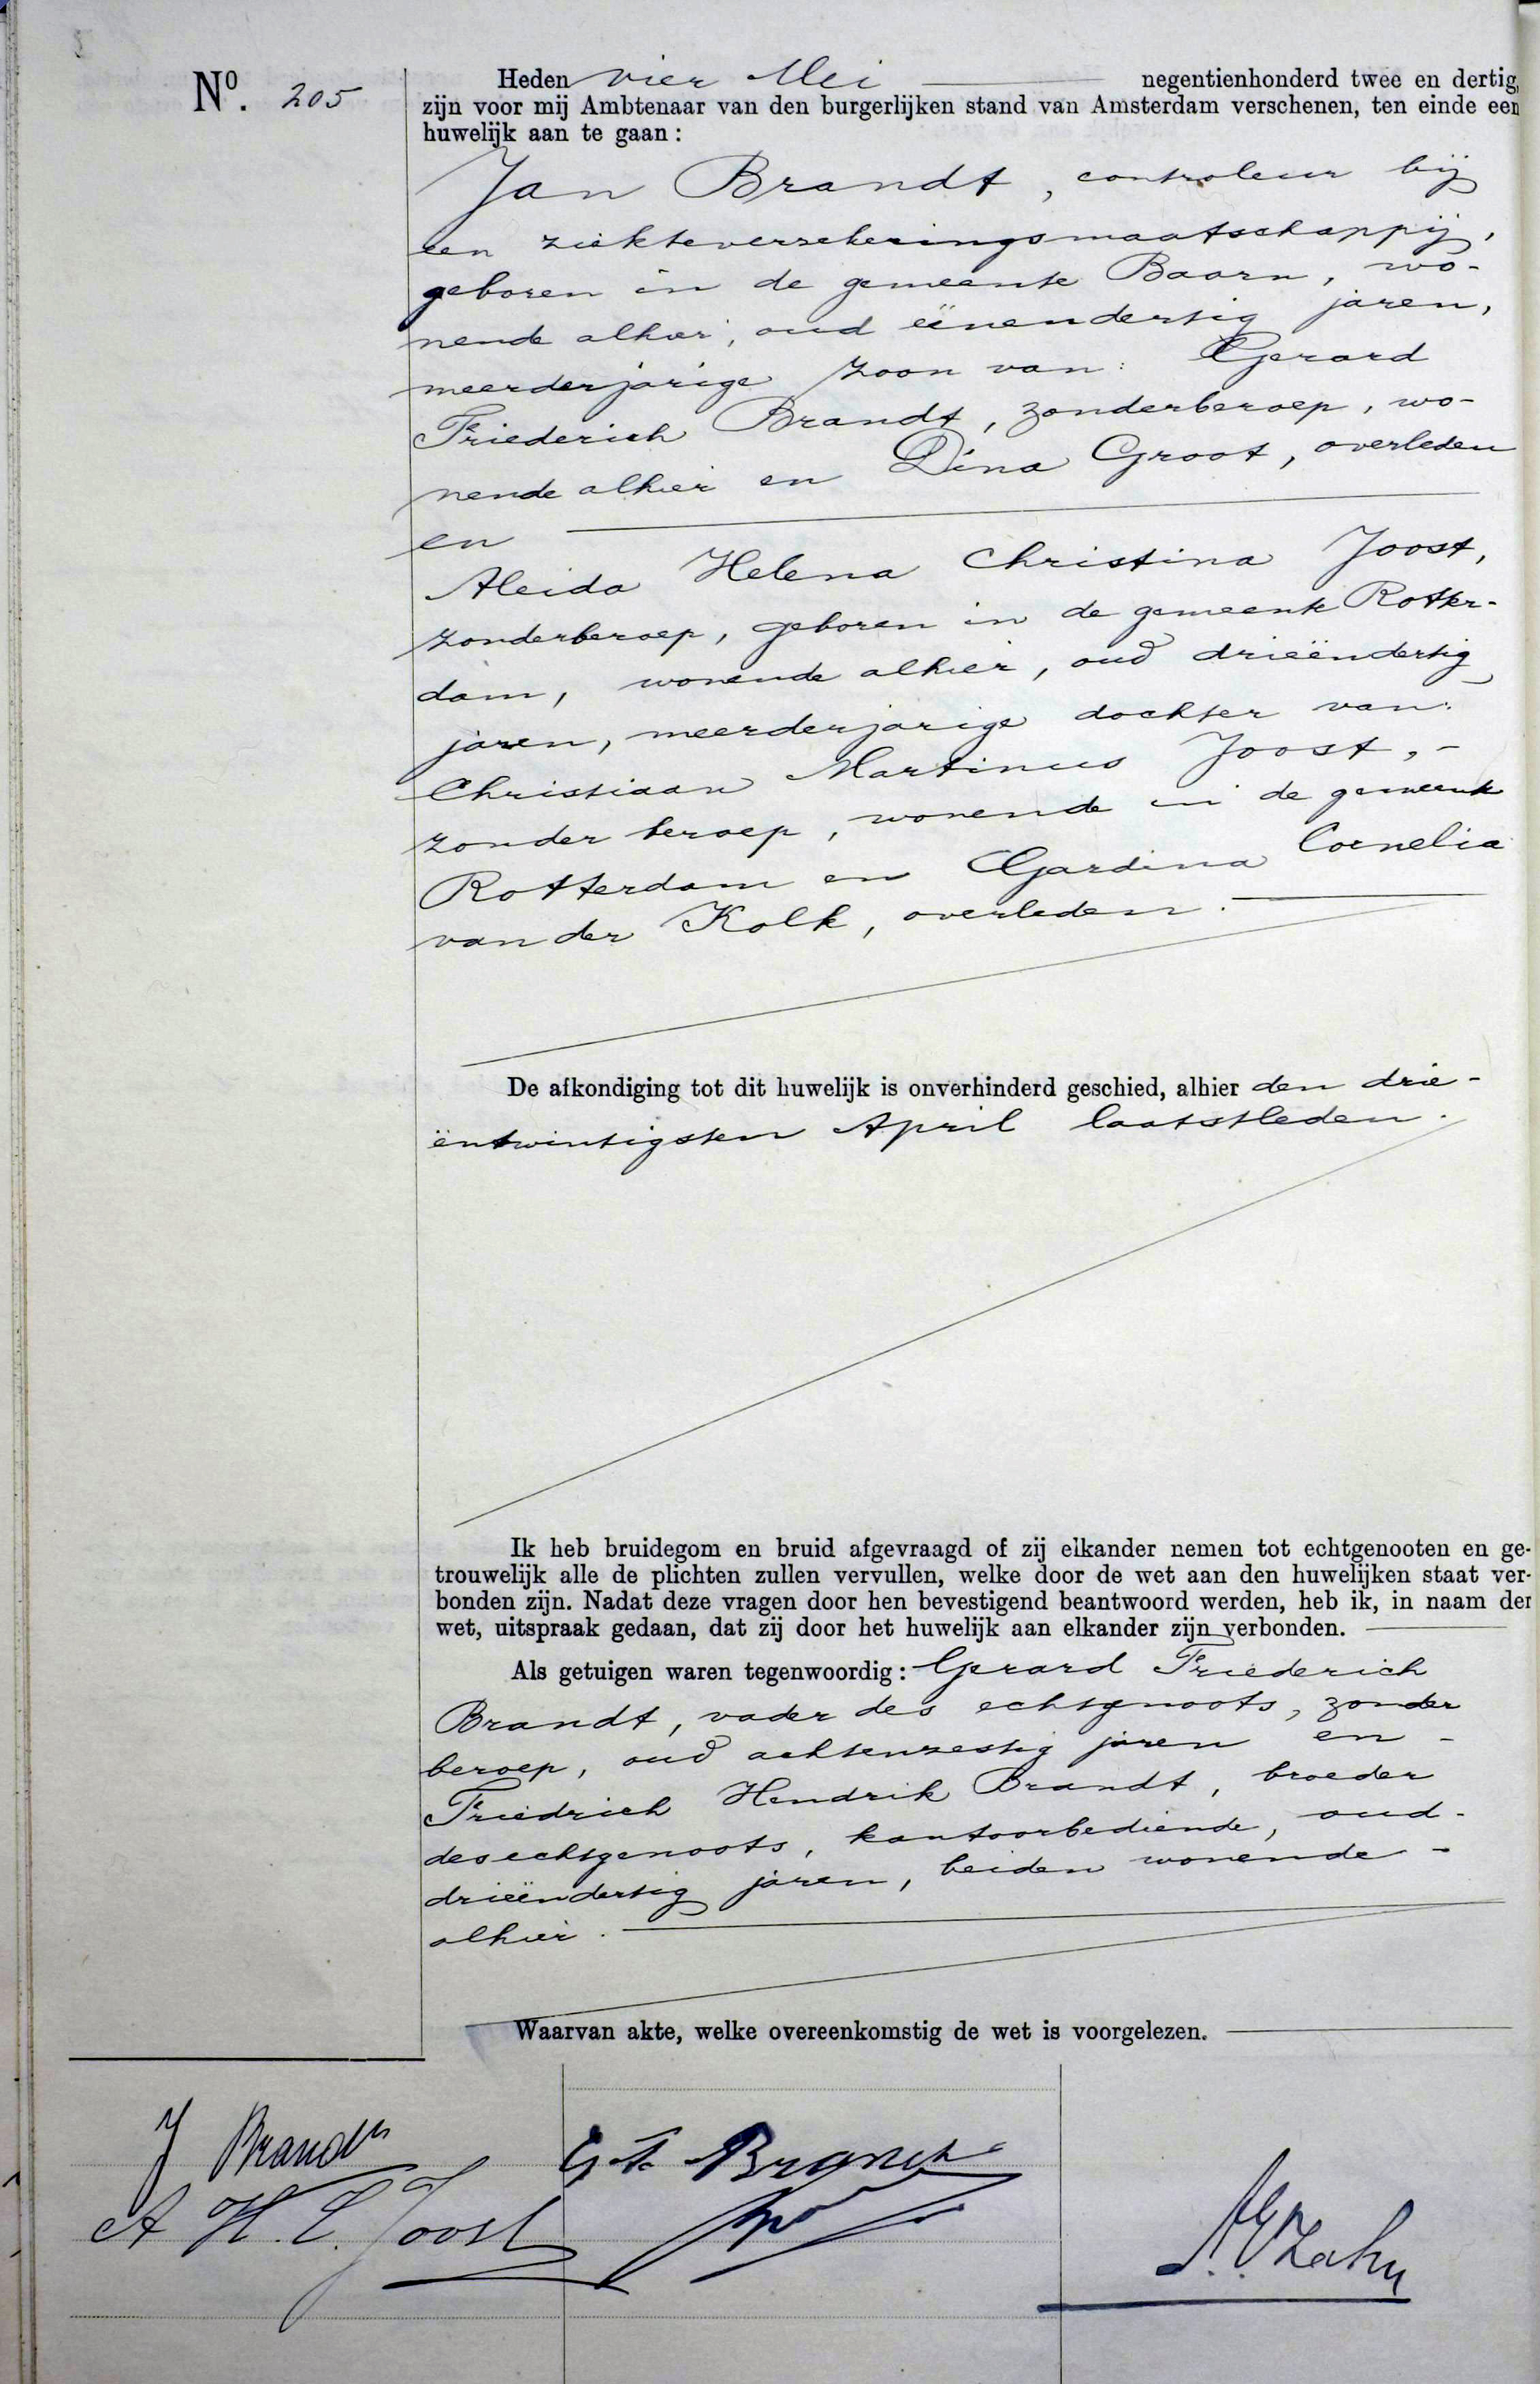 Nº. 205
Heden vier Mei negentienhonderd twee en dertig,
zijn voor mij Ambtenaar van den burgerlijken stand van Amsterdam verschenen, ten einde een
huwelijk aan te gaan:
Jan Brandt, controleur bij
een ziekteverzekeringsmaatschappij,
geboren in de gemeente Baarn, wo-
nende alhier, oud eenendertig jaren,
meerderjarige zoon van: Gerard
Friederich Brandt, zonder beroep, wo-
nende alhier en Dina Groot, overleden
en
Aleida Helena Christina Joost,
zonder beroep, geboren in de gemeente Rotter-
dam, wonende alhier, oud drieëndertig
jaren, meerderjarige dochter van:
Christiaan Martinus Joost, -
zonder beroep, wonende in de gemeente
Rotterdam en Gardina Cornelia
van der Kolk, overleden.
De afkondiging tot dit huwelijk is onverhinderd geschied, alhier den drie-
ëntwintigsten April laatstleden.
Ik heb bruidegom en bruid afgevraagd of zij elkander nemen tot echtgenooten en ge-
trouwelijk alle de plichten zullen vervullen, welke door de wet aan den huwelijken staat ver-
bonden zijn. Nadat deze vragen door hen bevestigend beantwoord werden, heb ik, in naam der
wet, uitspraak gedaan, dat zij door het huwelijk aan elkander zijn verbonden.
Als getuigen waren tegenwoordig: Gerard Friederich
Brandt, vader des echtgenoots, zonder
beroep, oud achtenzestig jaren en -
Friedrich Hendrik Brandt, broeder
des echtgenoots, kantoorbediende, oud -
drieëndertig jaren, beiden wonende -
alhier.
Waarvan akte, welke overeenkomstig de wet is voorgelezen.
J Brandt
G. F. Brandt
A H. C. Joost